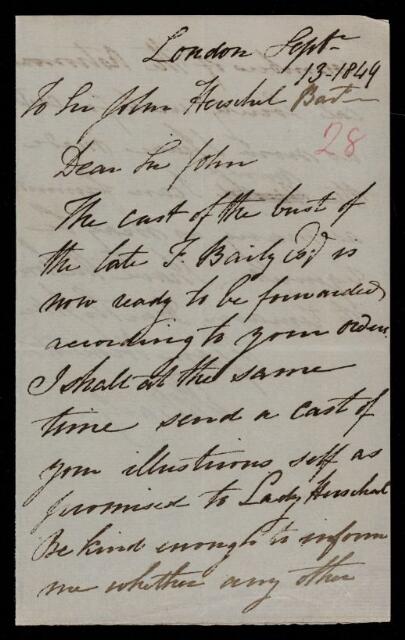 London Septr
13-1849
To Sir John Herschel Bart
28
Dear Sir John
The cast of the bust of
the late F. Baily Esqr is
now ready to be forwarded
according to your order.
I shall at the same
time send a cast of
your illustrious self as
promised to Lady Herschel
Be kind enough to inform
me whether any other